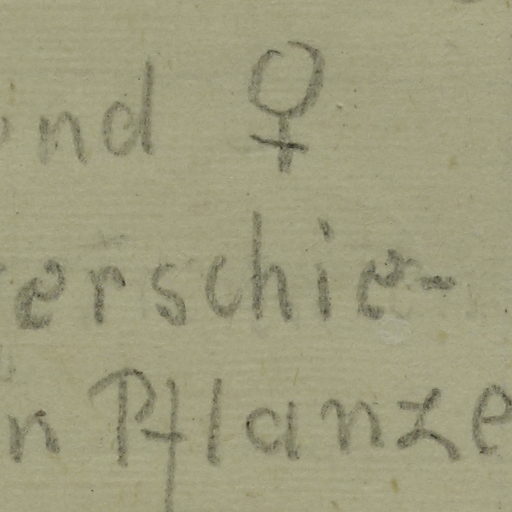 und ♀
erschie-
n Pflanze